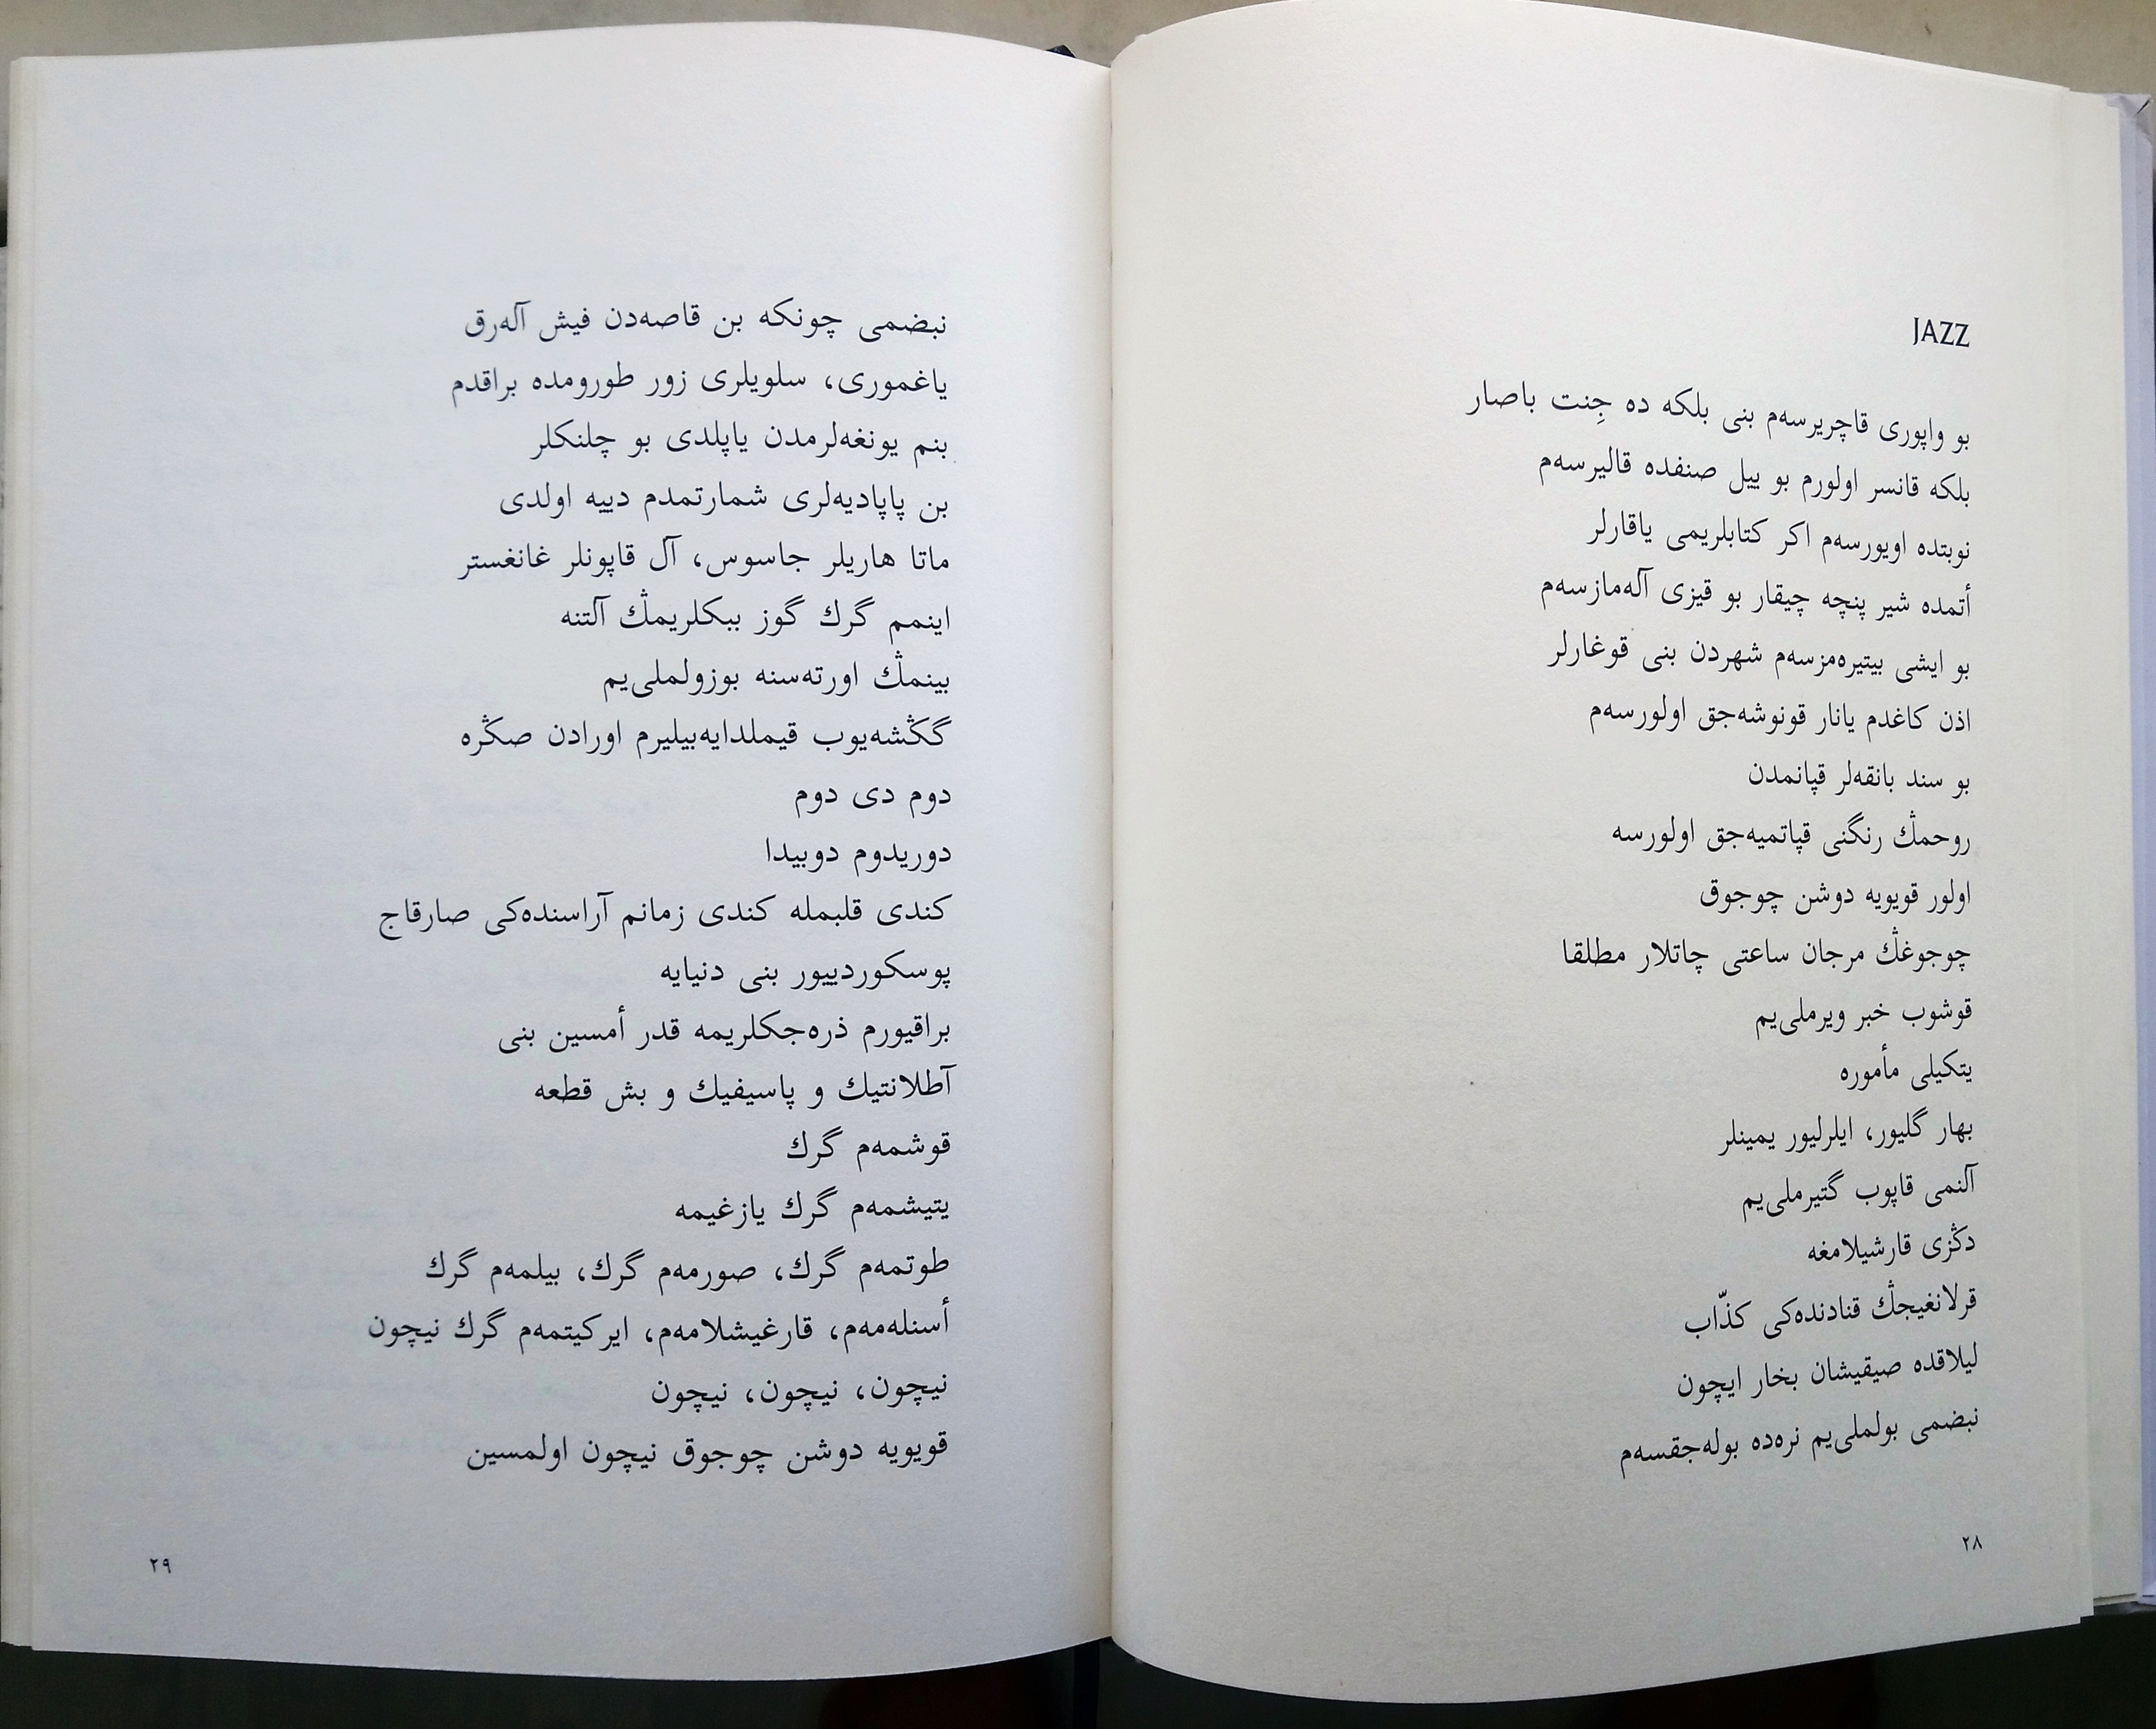 JAZZ
بو واپوری قاچریرسه‌م بنی بلكه ده جِنت باصار
بلكه قانسر اولورم بو ییل صنفده قالیرسه‌م
نوبتده اویورسه‌م اكر كتابلریمی یاقارلر
أتمده شیر پنچه چیقار بو قیزی آله‌مازسه‌م
بو ایشی بیتیره‌مزسه‌م شهردن بنی قوغارلر
اذن كاغدم یانار قونوشه‌جق اولورسه‌م
بو سند بانقه‌لر قپانمدن
روحمڭ رنگنی قپاتمیه‌جق اولورسه
اولور قویویه دوشن چوجوق
چوجوغڭ مرجان ساعتی چاتلار مطلقا
قوشوب خبر ویرملی‌یم
یتكیلی مأموره
بهار گلیور، ایلرلیور یمینلر
آلنمی قاپوب گتیرملی‌یم
دڭزی قارشیلامغه
قرلانغیجڭ قنادنده‌كی كذّاب
لیلاقده صیقیشان بخار ایچون
نبضمی بولملی‌یم نره‌ده بوله‌جقسه‌م
۲۸
نبضمی چونكه بن قاصه‌دن فیش آله‌رق
یاغموری، سلویلری زور طورومده براقدم
بنم یونغه‌لرمدن یاپلدی بو چلنكلر
بن پاپادیه‌لری شمارتمدم دییه اولدی
ماتا هاریلر جاسوس، آل قاپونلر غانغستر
اینمم گرك گوز ببكلریمڭ آلتنه
بینمڭ اورته‌سنه بوزولملی‌یم
گڭشه‌یوب قیملدایه‌بیلیرم اورادن صڭره
دوم دی دوم
دوریدوم دوبیدا
كندی قلبمله كندی زمانم آراسنده‌كی صارقاج
پوسكوردییور بنی دنیایه
براقیورم ذره‌جكلریمه قدر أمسین بنی
آطلانتیك و پاسیفیك و بش قطعه
قوشمه‌م گرك
یتیشمه‌م گرك یازغیمه
طوتمه‌م گرك، صورمه‌م گرك، بیلمه‌م گرك
أسنله‌مه‌م، قارغیشلامه‌م، ایركیتمه‌م گرك نیچون
نیچون، نیچون، نیچون
قویویه دوشن چوجوق نیچون اولمسین
۲۹